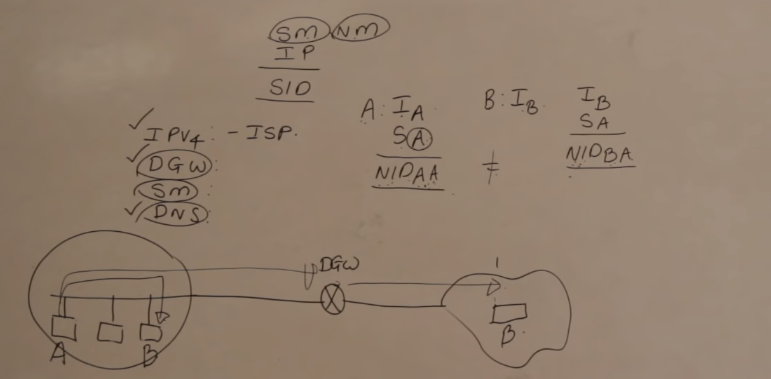 SM NM
IP
SID
IPV4: - ISP.
DGW:
SM
DNS:
A: IA
SA
NIDAA
≠
B: IB
IB
SA
NIDBA
DGW
A
B
B